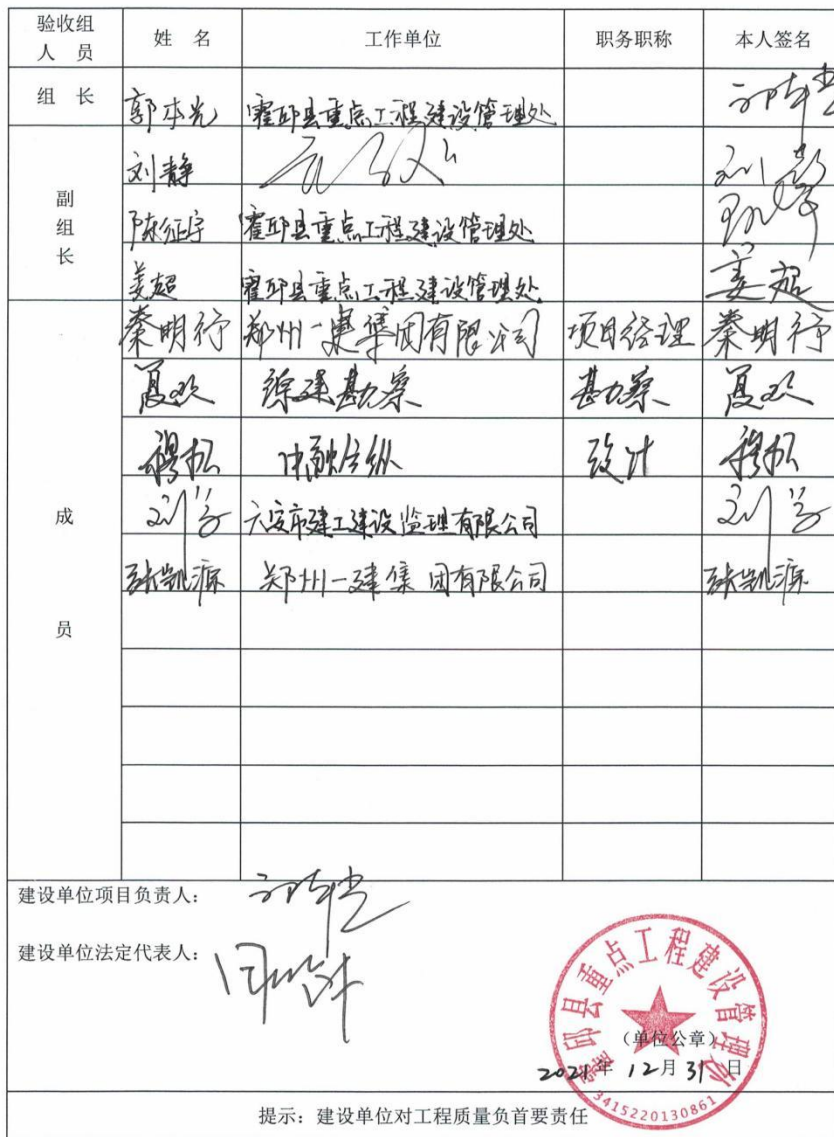 验收组人员 姓 名 工作单位 职务职称 本人签名
组 长 郭本光 霍邱县重点工程建设管理处
副组长 刘静
陈征宇 霍邱县重点工程建设管理处
姜超 霍邱县重点工程建设管理处 姜超
成员 秦明行 郑州一建集团有限公司 项目经理 秦明行
夏欢 综建勘察 勘察 夏欢
穆松 设计 穆松
刘 六安市建工建设监理有限公司 刘
张凯源 郑州一建集团有限公司 张凯源
建设单位项目负责人：
建设单位法定代表人：
霍邱县重点工程建设管理处
（单位公章）
2021年 12月 31 日
3415220130861
提示：建设单位对工程质量负首要责任